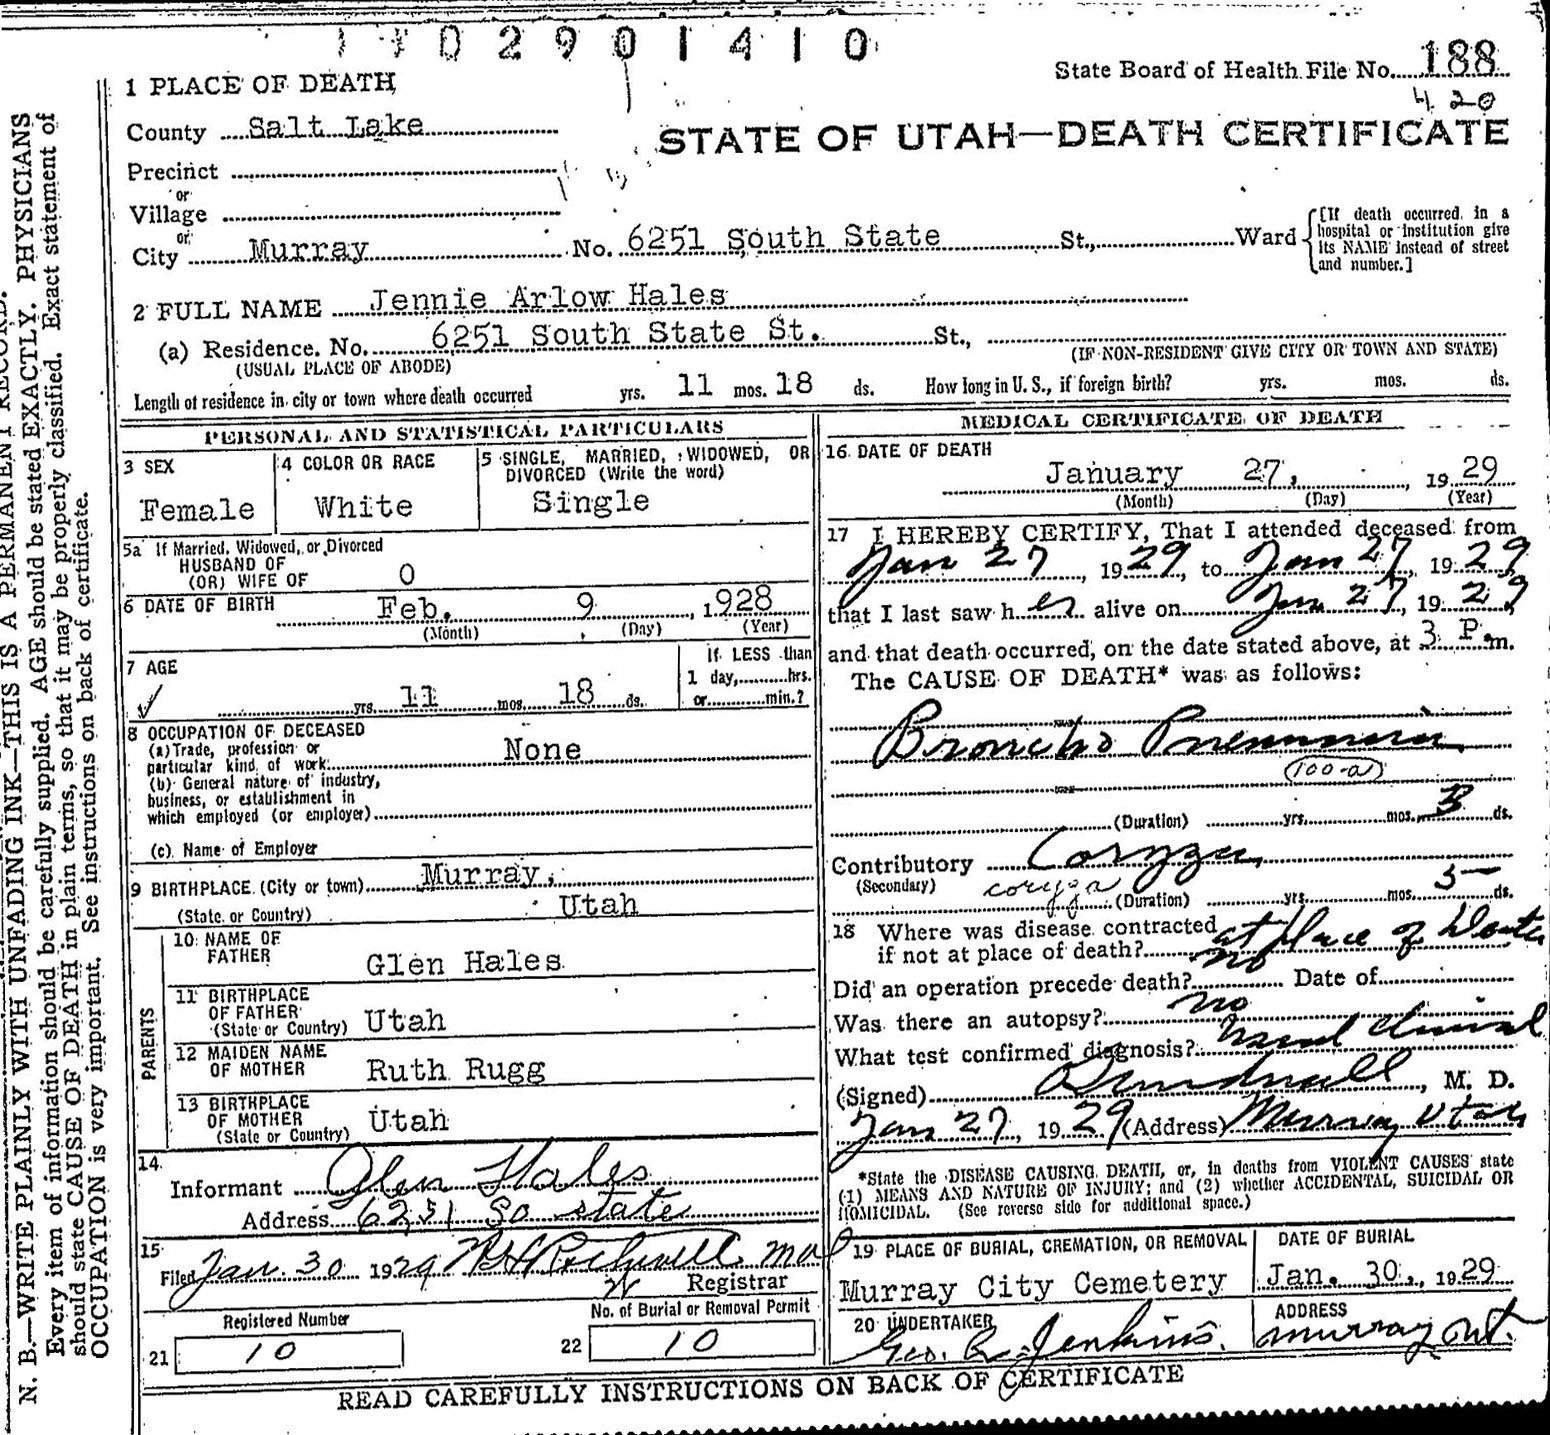 1 1 0 2 9 0 1 4 1 0
State Board of Health File No. 188
420
1 PLACE OF DEATH
County Salt Lake
STATE OF UTAH—DEATH CERTIFICATE
Precinct
or
Village
or
City Murray No. 6251 South State St., Ward
[If death occurred in a hospital or institution give its NAME instead of street and number.]
2 FULL NAME Jennie Arlow Hales
(a) Residence. No. 6251 South State St. St.,
(USUAL PLACE OF ABODE) (IF NON-RESIDENT GIVE CITY OR TOWN AND STATE)
Length of residence in city or town where death occurred yrs. 11 mos. 18 ds. How long in U. S., if foreign birth? yrs. mos. ds.
PERSONAL AND STATISTICAL PARTICULARS
3 SEX
Female
4 COLOR OR RACE
White
5 SINGLE, MARRIED, WIDOWED, OR DIVORCED (Write the word)
Single
5a If Married, Widowed, or Divorced
HUSBAND OF
(OR) WIFE OF O
6 DATE OF BIRTH Feb. 9, 1928
(Month) (Day) (Year)
7 AGE
yrs. 11 mos. 18 ds.
if LESS than
1 day, hrs.
or min.?
8 OCCUPATION OF DECEASED
(a) Trade, profession or
particular kind of work None
(b) General nature of industry,
business, or establishment in
which employed (or employer)
(c) Name of Employer
9 BIRTHPLACE (City or town) Murray,
(State or Country) Utah
PARENTS
10 NAME OF
FATHER Glen Hales
11 BIRTHPLACE
OF FATHER
(State or Country) Utah
12 MAIDEN NAME
OF MOTHER Ruth Rugg
13 BIRTHPLACE
OF MOTHER
(State or Country) Utah
14
Informant Glen Hales
Address 6251 So State
15
Filed Jan. 30 1929
Registrar
Registered Number
21 10
No. of Burial or Removal Permit
22 10
MEDICAL CERTIFICATE OF DEATH
16 DATE OF DEATH
January 27, 1929
(Month) (Day) (Year)
17 I HEREBY CERTIFY, That I attended deceased from
Jan 27, 1929, to Jan 27, 1929
that I last saw her alive on Jan 27, 1929
and that death occurred, on the date stated above, at 3 P.m.
The CAUSE OF DEATH* was as follows:
Broncho Pneumonia
100-a
(Duration) yrs. mos. 3 ds.
Contributory Coryza
(Secondary) coryza (Duration) yrs. mos. 5 ds.
18 Where was disease contracted
if not at place of death? at place of Death
Did an operation precede death? no Date of
Was there an autopsy? no
What test confirmed diagnosis? usual clinical
(Signed) , M. D.
Jan 27, 1929 (Address) Murray Utah
*State the DISEASE CAUSING DEATH, or, in deaths from VIOLENT CAUSES state
(1) MEANS AND NATURE OF INJURY; and (2) whether ACCIDENTAL, SUICIDAL OR
HOMICIDAL. (See reverse side for additional space.)
19 PLACE OF BURIAL, CREMATION, OR REMOVAL
Murray City Cemetery
DATE OF BURIAL
Jan. 30., 1929
20 UNDERTAKER
Geo. R. Jenkins.
ADDRESS
Murray Ut.
READ CAREFULLY INSTRUCTIONS ON BACK OF CERTIFICATE
N. B.—WRITE PLAINLY WITH UNFADING INK—THIS IS A PERMANENT RECORD.
Every item of information should be carefully supplied. AGE should be stated EXACTLY. PHYSICIANS
should state CAUSE OF DEATH in plain terms, so that it may be properly classified. Exact statement of
OCCUPATION is very important. See instructions on back of certificate.